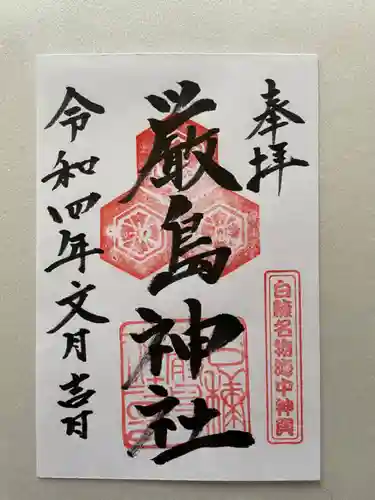 奉拝
厳島神社
令和四年文月吉日
白鬚名物湖中神輿